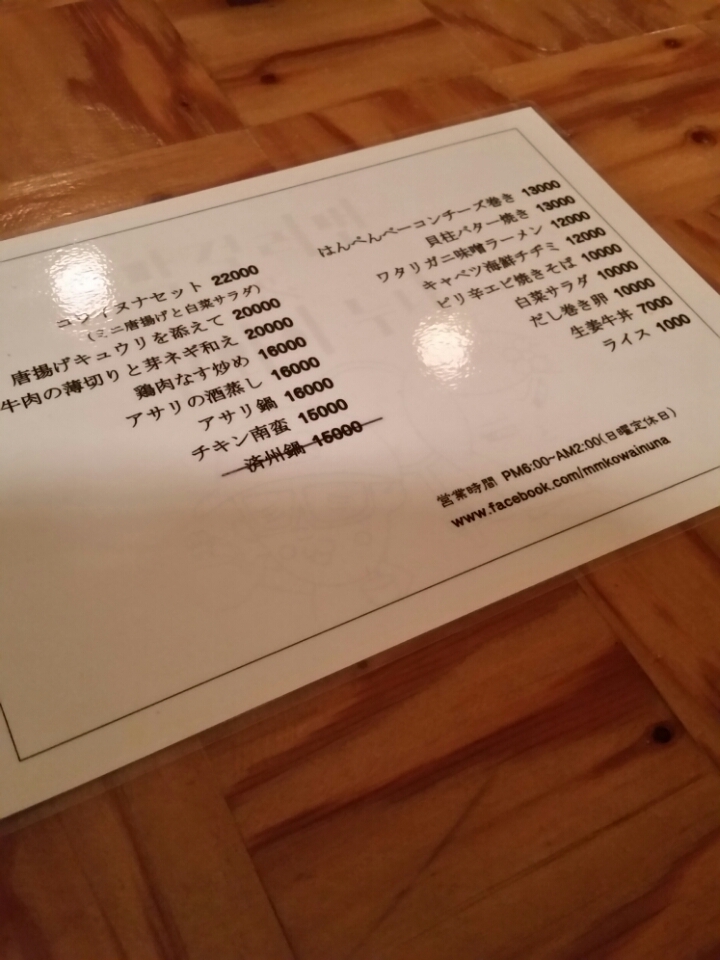 コワイヌナセット 22000
(ミニ唐揚げと白菜サラダ)
唐揚げキュウリを添えて 20000
牛肉の薄切りと芽ネギ和え 20000
鶏肉なす炒め 16000
アサリの酒蒸し 16000
アサリ鍋 16000
チキン南蛮 15000
済州鍋 15000
はんぺんベーコンチーズ巻き 13000
貝柱バター焼き 13000
ワタリガニ味噌ラーメン 12000
キャベツ海鮮チヂミ 12000
ピリ辛エビ焼きそば 10000
白菜サラダ 10000
だし巻き卵 10000
生姜牛丼 7000
ライス 1000
営業時間 PM6:00~AM2:00(日曜定休日)
www.facebook.com/mmkowainuna